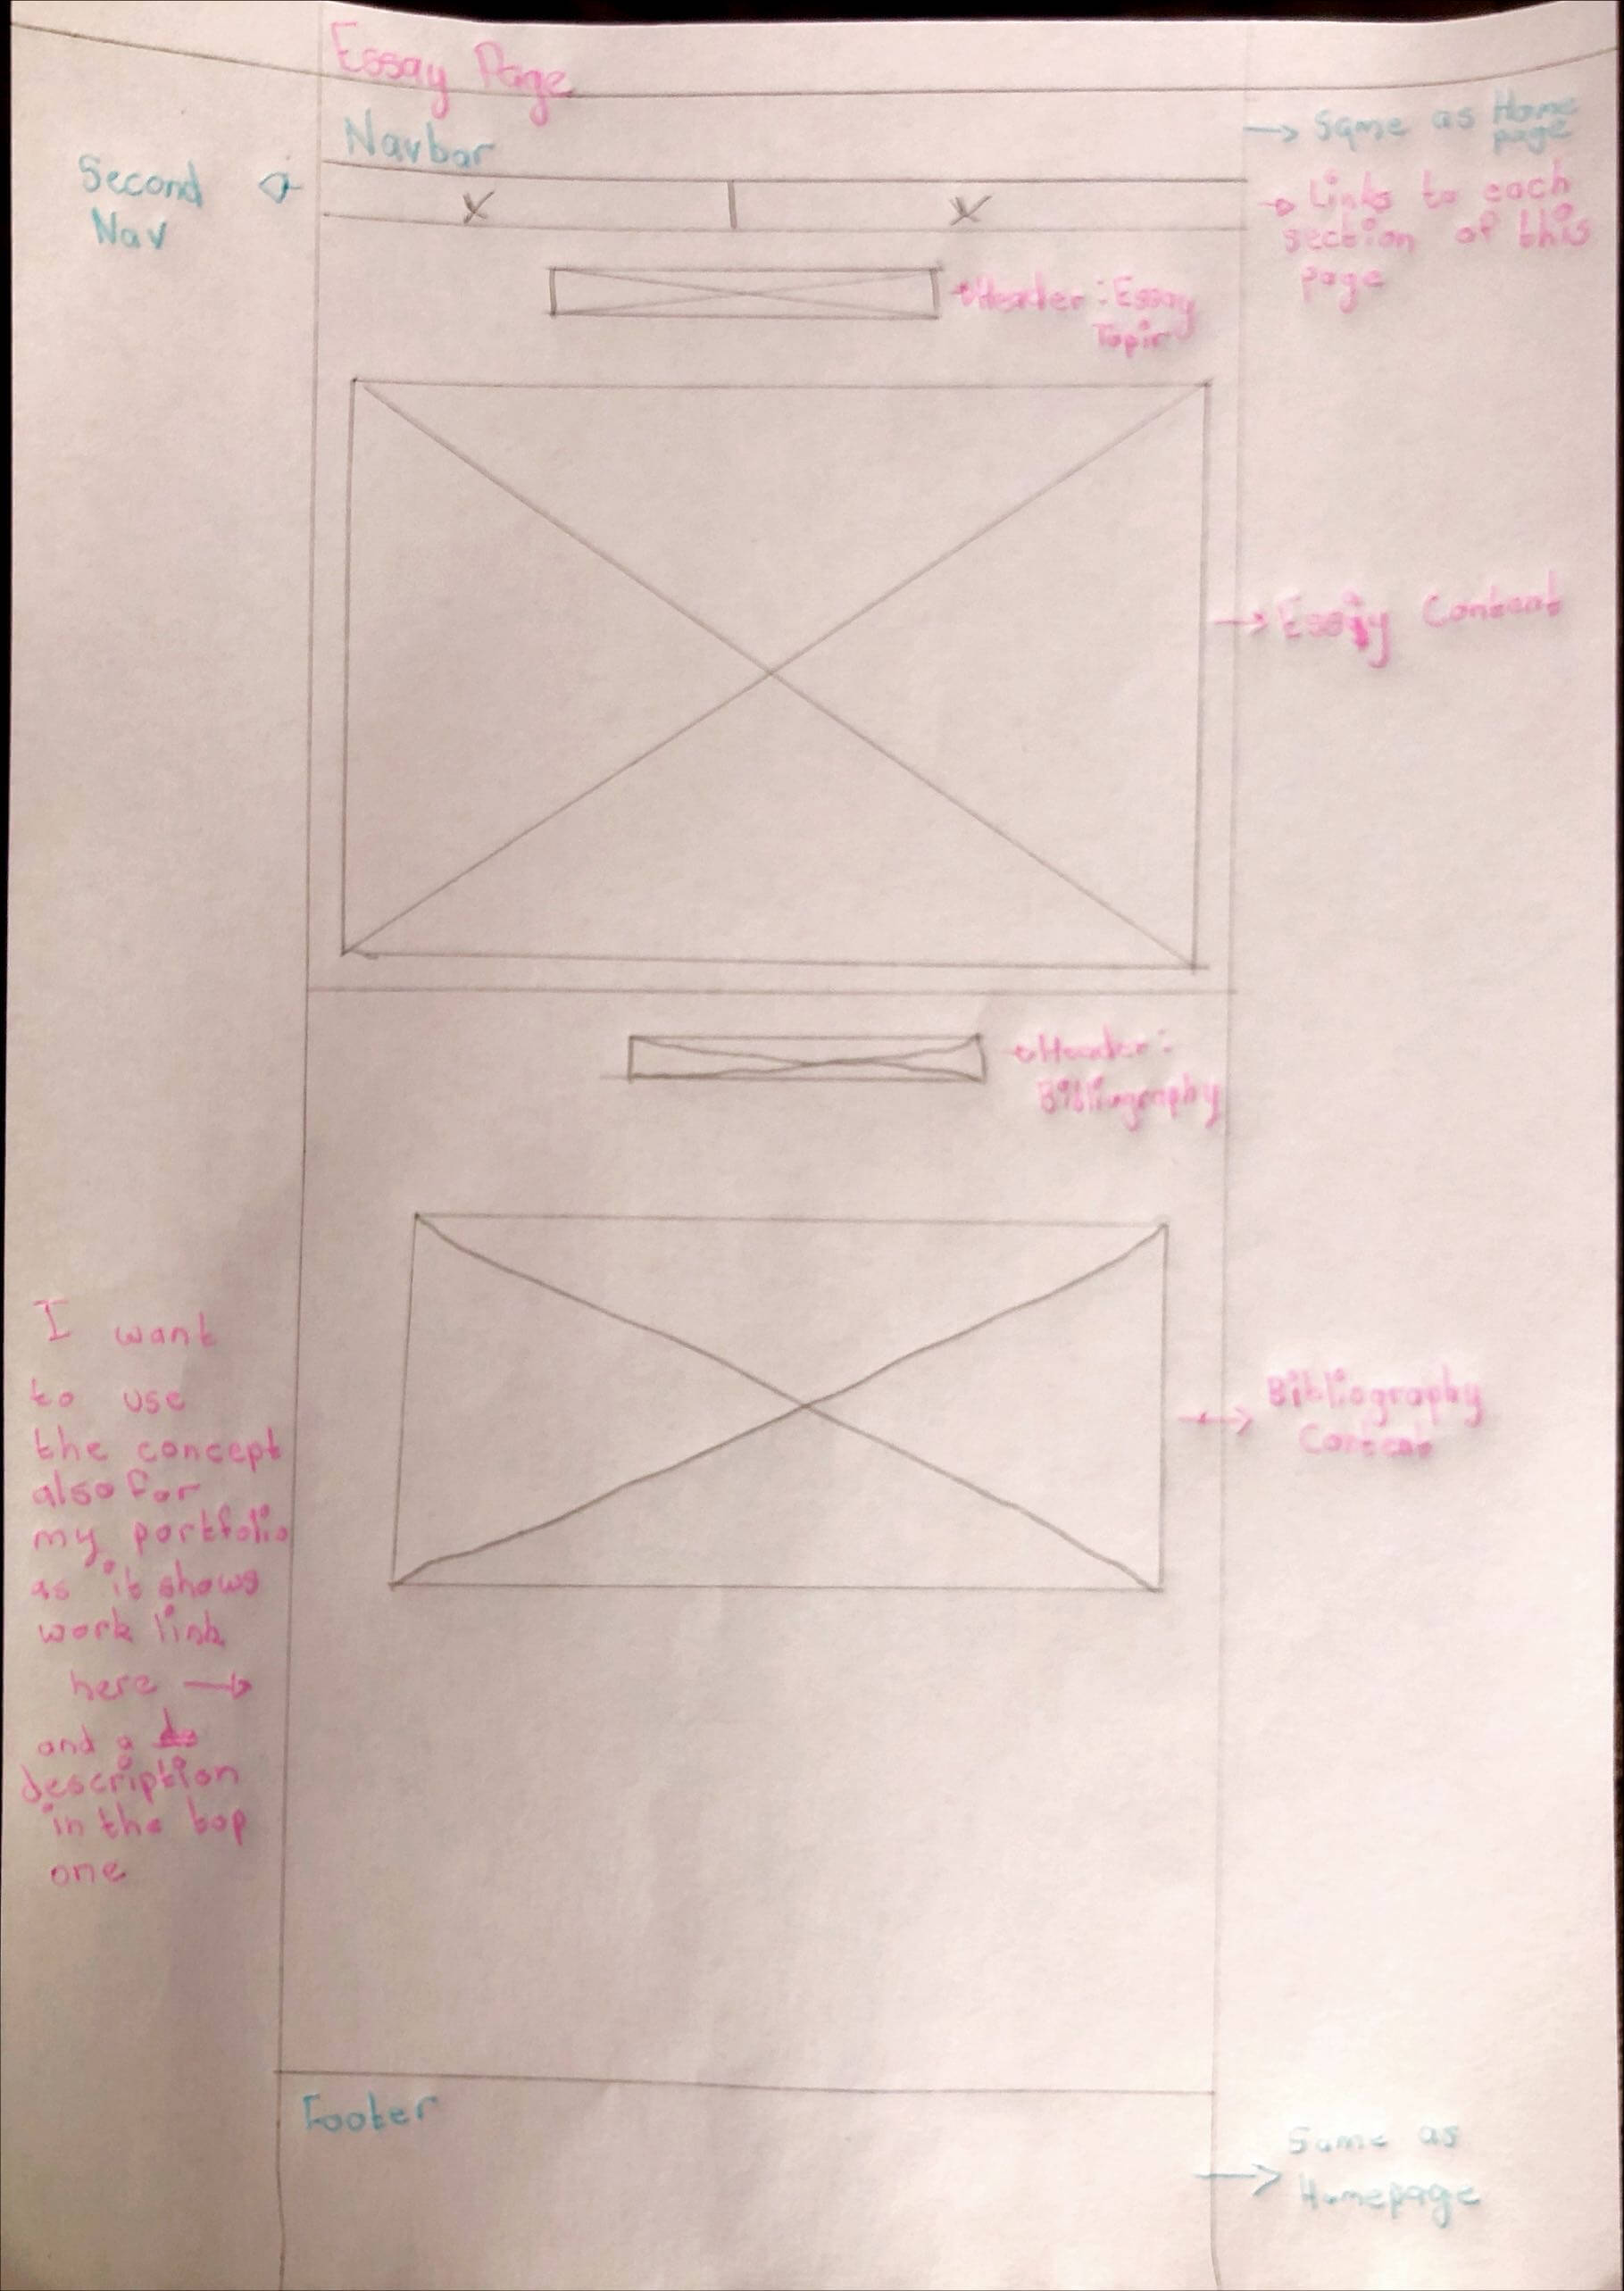 Essay Page
Navbar
→ Same as Home
page
Second
Nav
→ Links to each
section of this
page
x
x
Header : Essay
Topic
→ Essay Content
Header :
Bibliography
I want
to use
the concept
also for
my portfolio
as it shows
work link
here →
and a
description
in the top
one
Bibliography
Content
Footer
Same as
Homepage